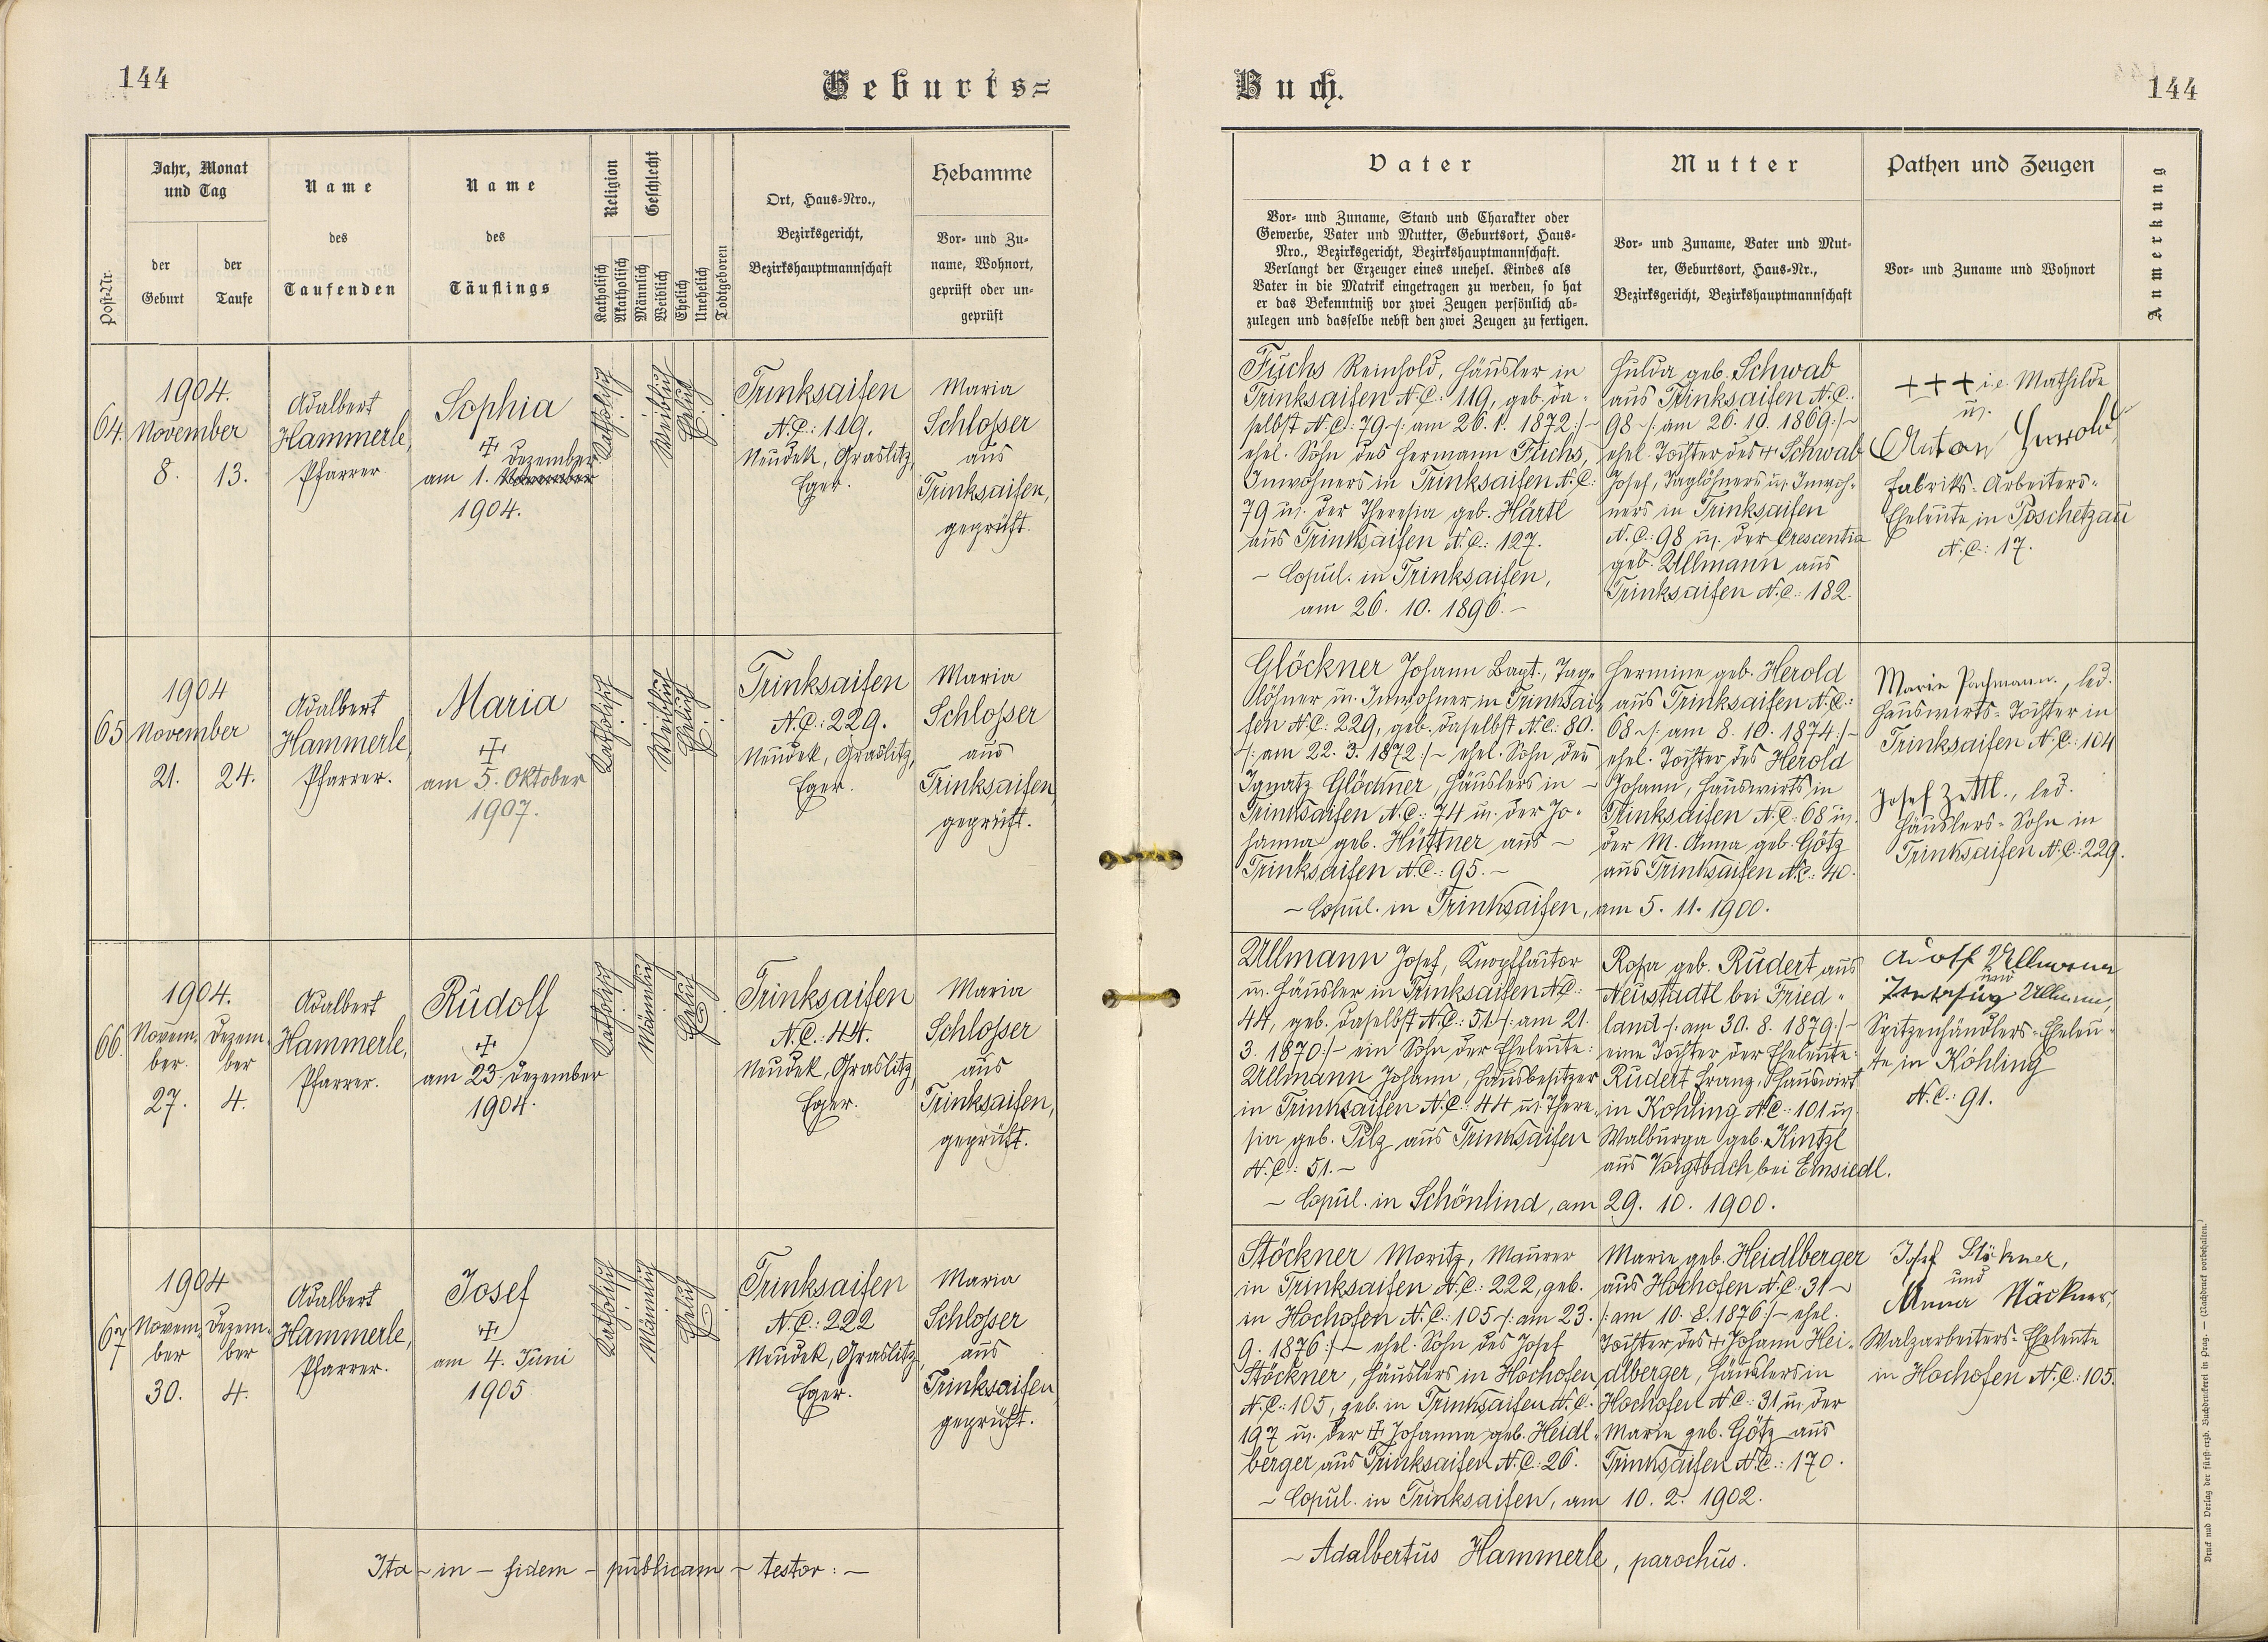 144
Geburts=
Post-Nr.
Jahr, Monat
und Tag
der
Geburt
der
Taufe
Name
des
Taufenden
Name
des
Täuflings
Religion
Katholisch
Akatholisch
Geschlecht
Männlich
Weiblich
Ehelich
Unehelich
Todtgeboren
Ort, Haus=Nro.,
Bezirksgericht,
Bezirkshauptmannschaft
Hebamme
Vor= und Zu=
name, Wohnort,
geprüft oder un=
geprüft
64.
1904.
November
8. 13.
Adalbert
Hammerle,
Pfarrer
Sophia
✠
Dezember
am 1. November
1904.
Katholisch
Weiblich
Ehelich
Trinksaifen
N.C.: 119.
Neudek, Graslitz,
Eger.
Maria
Schlosser
aus
Trinksaifen,
geprüft.
65
1904
November
21. 24.
Adalbert
Hammerle,
Pfarrer.
Maria
✠
am 5. Oktober
1907.
Katholisch
Weiblich
Ehelich
Trinksaifen
N.C.: 229.
Neudek, Graslitz,
Eger.
Maria
Schlosser
aus
Trinksaifen,
geprüft.
66.
1904.
Novem= Dezem=
ber. ber
27. 4.
Adalbert
Hammerle,
Pfarrer.
Rudolf
✠
am 23. Dezember
1904.
Katholisch
Männlich
Ehelich
Trinksaifen
N.C.: 44.
Neudek, Graslitz,
Eger.
Maria
Schlosser
aus
Trinksaifen,
geprüft.
67
1904
Novem= Dezem=
ber ber
30. 4.
Adalbert
Hammerle,
Pfarrer.
Josef
✠
am 4. Juni
1905
Katholisch
Männlich
Ehelich
Trinksaifen
N.C.: 222
Neudek, Graslitz,
Eger.
Maria
Schlosser
aus
Trinksaifen,
geprüft.
Ita – in – fidem – publicam – testor: –
Buch.
144
Vater
Vor= und Zuname, Stand und Charakter oder
Gewerbe, Vater und Mutter, Geburtsort, Haus=
Nro., Bezirksgericht, Bezirkshauptmannschaft.
Verlangt der Erzeuger eines unehel. Kindes als
Vater in die Matrik eingetragen zu werden, so hat
er das Bekenntniß vor zwei Zeugen persönlich ab=
zulegen und dasselbe nebst den zwei Zeugen zu fertigen.
Mutter
Vor= und Zuname, Vater und Mut=
ter, Geburtsort, Haus=Nr.,
Bezirksgericht, Bezirkshauptmannschaft
Pathen und Zeugen
Vor= und Zuname und Wohnort
Anmerkung
Fuchs Reinhold, Häusler in
Trinksaifen N.C.: 119, geb. da=
selbst N.C.: 79 /: am 26. 1. 1872 :/ –
ehel. Sohn des Hermann Fuchs,
Inwohners in Trinksaifen N.C.:
79 u. der Theresia geb. Härtl
aus Trinksaifen N.C.: 127.
– Copul. in Trinksaifen,
am 26. 10. 1896. –
Hulda geb. Schwab
aus Trinksaifen N.C.:
98 /: am 26. 10. 1869 :/ –
ehel. Tochter des + Schwab
Josef, Taglöhners u. Inwoh=
ners in Trinksaifen
N.C.: 98 u. der Crescentia
geb. Ullmann aus
Trinksaifen N.C.: 182.
+++ i.e. Mathilde
u.
Anton
Fabriks=Arbeiters=
Eheleute in Poschetzau
N.C.: 17.
Glöckner Johann Bapt., Tag=
löhner u. Inwohner in Trinksai=
fen N.C.: 229, geb. daselbst N.C.: 80.
/: am 22. 3. 1872 :/ – ehel. Sohn des
Ignatz Glöckner, Häuslers in –
Trinksaifen N.C.: 74 u. der Jo=
hanna geb. Hüttner aus –
Trinksaifen N.C.: 95. –
Hermine geb. Herold
aus Trinksaifen N.C.:
68 /: am 8. 10. 1874 :/ –
ehel. Tochter des Herold
Johann, Hauswirts in
Trinksaifen N.C.: 68 u.
der M. Anna geb. Götz
aus Trinksaifen N.C.: 40.
– Copul. in Trinksaifen, am 5. 11. 1900.
Marie Pachmann., led.
Hauswirts=Tochter in
Trinksaifen N.C.: 104
Josef Zettl., led.
Häuslers=Sohn in
Trinksaifen N.C.: 229.
Ullmann Josef, Knopffaktor
u. Häusler in Trinksaifen N.C.:
44, geb. daselbst N.C.: 51 /: am 21.
3. 1870 :/ – ein Sohn der Eheleute:
Ullmann Johann, Hausbesitzer
in Trinksaifen N.C.: 44 u. There=
sia geb. Pilz aus Trinksaifen
N.C.: 51. –
Rosa geb. Rudert aus
Neustadtl bei Fried=
land /: am 30. 8. 1879 :/ –
eine Tochter der Eheleute:
Rudert Franz, Hauswirt
in Kohling N.C.: 101 u.
Walburga geb. Kintzl
aus Voigtbach bei Einsiedl.
– Copul. in Schönlind, am 29. 10. 1900.
Adolf Ullmann
und
Ullmann,
Spitzenhändlers=Eheleu=
te in Kohling
N.C.: 91.
Stöckner Moritz, Maurer
in Trinksaifen N.C.: 222, geb.
in Hochofen N.C.: 105 /: am 23.
9. 1876 :/ – ehel. Sohn des Josef
Stöckner, Häuslers in Hochofen
N.C.: 105, geb. in Trinksaifen N.C.:
197 u. der ✠ Johanna geb. Heidl=
berger aus Trinksaifen N.C.: 26.
Marie geb. Heidlberger
aus Hochofen N.C.: 31 –
/: am 10. 8. 1876 :/ – ehel.
Tochter des + Johann Hei=
dlberger, Häuslers in
Hochofen N.C.: 31 u. der
Marie geb. Götz aus
Trinksaifen N.C.: 170.
– Copul. in Trinksaifen, am 10. 2. 1902.
Josef Stöckner,
und
Anna Stöckner,
Walzarbeiters=Eheleute
in Hochofen N.C.: 105.
– Adalbertus Hammerle, parochus.
Druck und Verlag der fürst-erzb. Buchdruckerei in Prag. — (Nachdruck vorbehalten.)
144